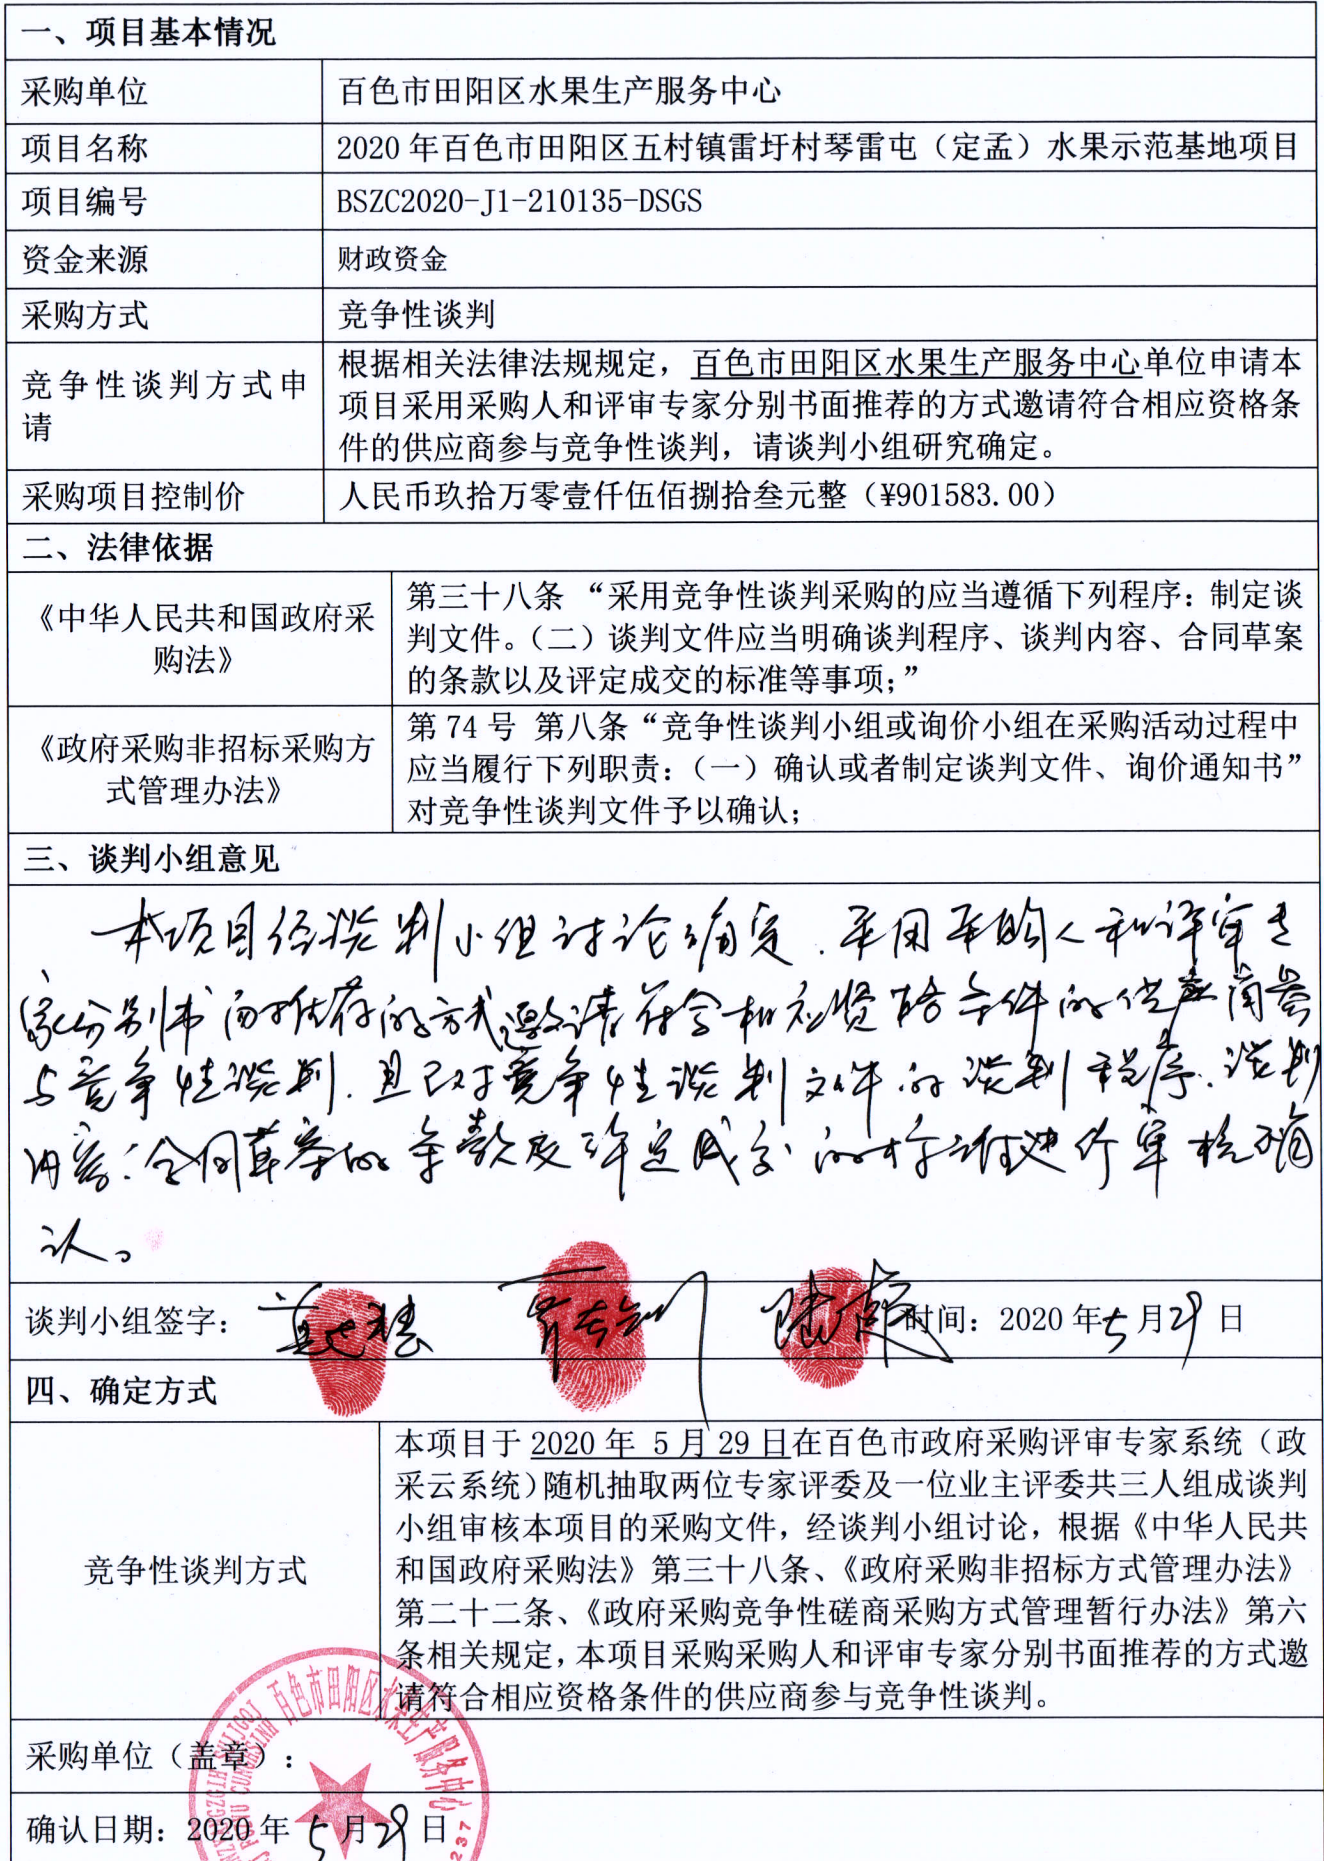 一、项目基本情况
采购单位
百色市田阳区水果生产服务中心
项目名称
2020年百色市田阳区五村镇雷圩村琴雷屯（定孟）水果示范基地项目
项目编号
BSZC2020-J1-210135-DSGS
资金来源
财政资金
采购方式
竞争性谈判
竞争性谈判方式申
请
根据相关法律法规规定，百色市田阳区水果生产服务中心单位申请本
项目采用采购人和评审专家分别书面推荐的方式邀请符合相应资格条
件的供应商参与竞争性谈判，请谈判小组研究确定。
采购项目控制价
人民币玖拾万零壹仟伍佰捌拾叁元整（¥901583.00）
二、法律依据
《中华人民共和国政府采
购法》
第三十八条 “采用竞争性谈判采购的应当遵循下列程序：制定谈
判文件。（二）谈判文件应当明确谈判程序、谈判内容、合同草案
的条款以及评定成交的标准等事项；”
《政府采购非招标采购方
式管理办法》
第 74 号 第八条“竞争性谈判小组或询价小组在采购活动过程中
应当履行下列职责：（一）确认或者制定谈判文件、询价通知书”
对竞争性谈判文件予以确认；
三、谈判小组意见
本项目经谈判小组讨论确定，采用采购人和评审专
家分别书面推荐的方式邀请符合相应资格条件的供应商参
与竞争性谈判，且已对竞争性谈判文件的谈判程序、谈判
内容、合同草案的条款及评定成交的标准进行审核确
认。
谈判小组签字：
时间：2020年5月29日
四、确定方式
竞争性谈判方式
本项目于 2020 年 5 月 29 日在百色市政府采购评审专家系统（政
采云系统）随机抽取两位专家评委及一位业主评委共三人组成谈判
小组审核本项目的采购文件，经谈判小组讨论，根据《中华人民共
和国政府采购法》第三十八条、《政府采购非招标方式管理办法》
第二十二条、《政府采购竞争性磋商采购方式管理暂行办法》第六
条相关规定，本项目采购采购人和评审专家分别书面推荐的方式邀
请符合相应资格条件的供应商参与竞争性谈判。
采购单位（盖章）：
百色市田阳区水果生产服务中心
确认日期：2020年5月29日